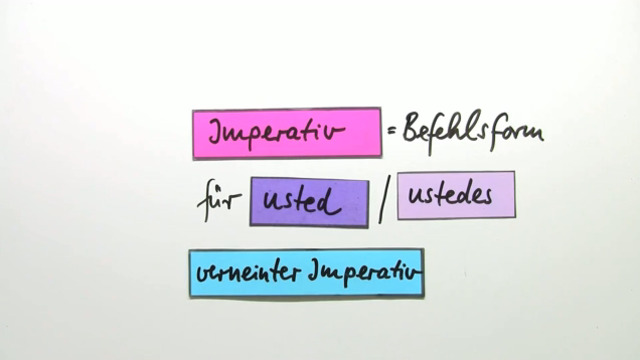 Imperativ = Befehlsform
für usted / ustedes
verneinter Imperativ